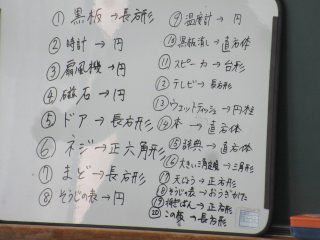 ① 黒板→長方形
② 時計→円
③ 扇風機→円
④ 磁石→円
⑤ ドア→長方形
⑥ ネジ→正六角形
⑦ まど→長方形
⑧ そうじの表→円
⑨ 温度計→円
⑩ 黒板消し→直方体
⑪ スピーカ→台形
⑫ テレビ→長方形
⑬ ウェットティッシュ→円柱
⑭ 本→直方体
⑮ 辞典→直方体
⑯ 大きい三角定規→三角形
⑰ 天じょう→正方形
⑱ そうじの表→おうぎがた
⑲ 将ぎばん→正方形
⑳ この→長方形